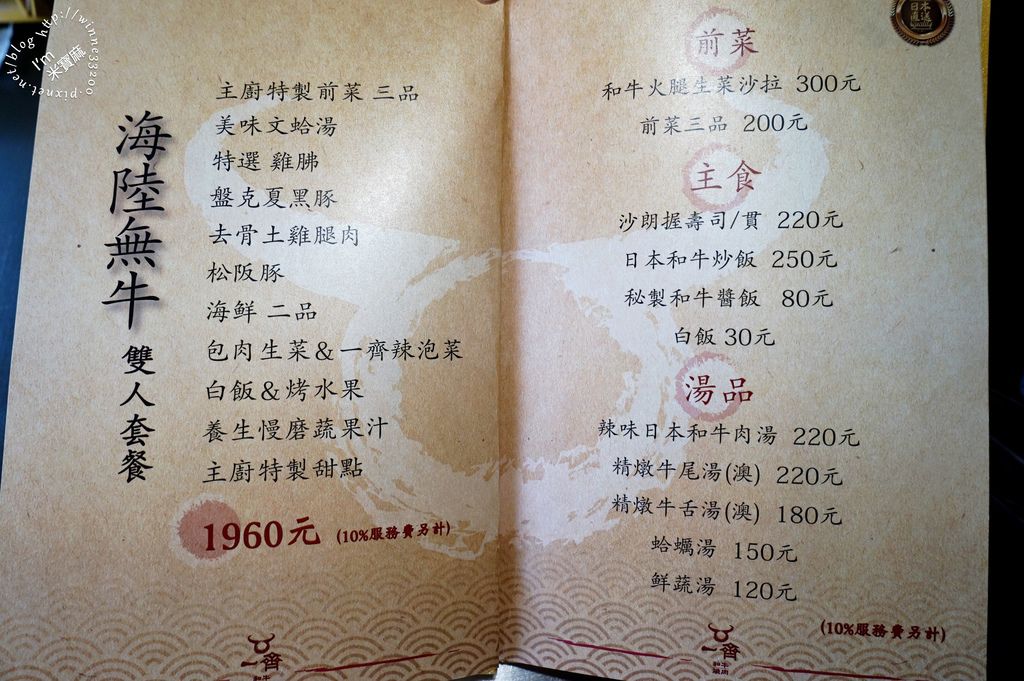 http://winne33200.pixnet.net/blog
I'm
米寶麻
海陸無牛 雙人套餐
主廚特製前菜 三品
美味文蛤湯
特選 雞胇
盤克夏黑豚
去骨土雞腿肉
松阪豚
海鮮 二品
包肉生菜&一齊辣泡菜
白飯&烤水果
養生慢磨蔬果汁
主廚特製甜點
1960元 (10%服務費另計)
一齊
日本
直送
前菜
和牛火腿生菜沙拉 300元
前菜三品 200元
主食
沙朗握壽司/貫 220元
日本和牛炒飯 250元
秘製和牛醬飯 80元
白飯 30元
湯品
辣味日本和牛肉湯 220元
精燉牛尾湯(澳) 220元
精燉牛舌湯(澳) 180元
蛤蠣湯 150元
鮮蔬湯 120元
(10%服務費另計)
一齊